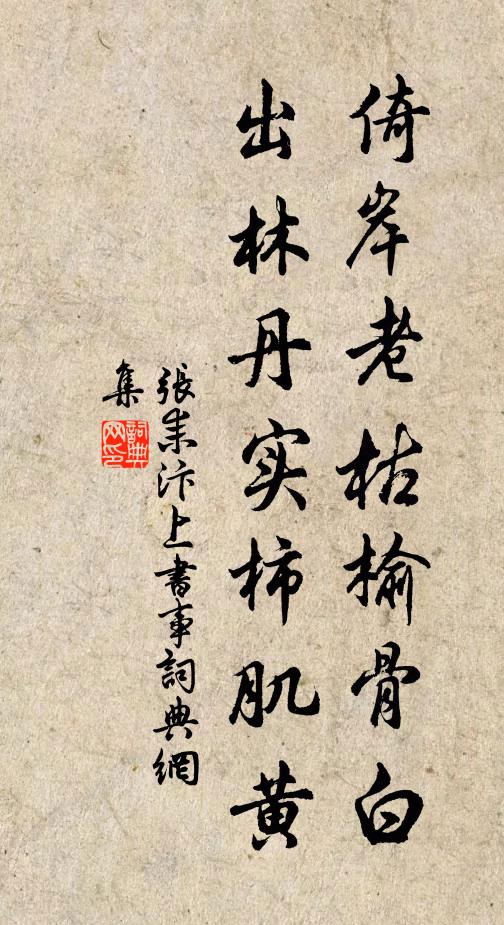 倚岸老枯榆骨白
出林丹实柿肌黄
張耒汴上書事詞典網
集
詞典
网印